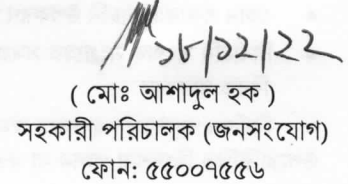 ১৮/১২/২২
( মোঃ আশাদুল হক )
সহকারী পরিচালক (জনসংযোগ)
ফোন: ৫৫০০৭৫৫৬